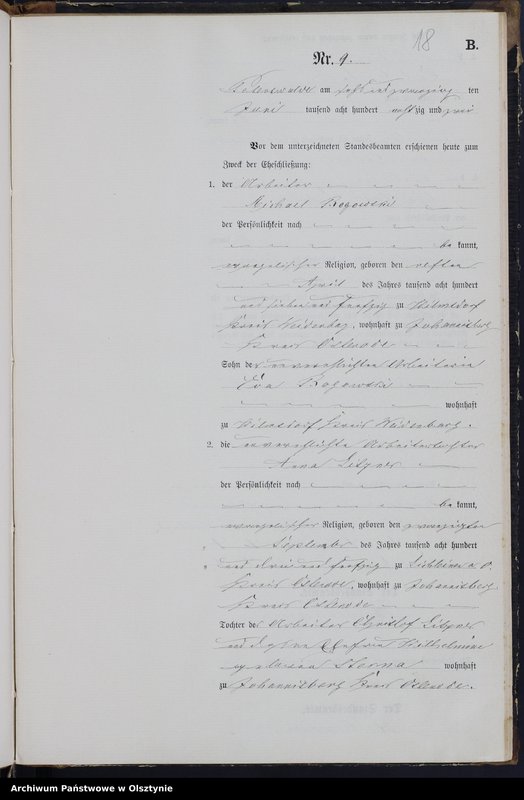 18
B.
Nr. 9.
am sechs und zwanzig ten
Juni tausend acht hundert achtzig und zwei
Vor dem unterzeichneten Standesbeamten erschienen heute zum
Zweck der Eheschließung:
1. der Arbeiter
Michael Rogowski
der Persönlichkeit nach
be kannt,
evangelischer Religion, geboren den elften
April des Jahres tausend acht hundert
und sieben und fünfzig zu
Kreis Neidenburg, wohnhaft zu Johannisberg
Kreis Osterode
Sohn der unverehelichten Arbeiterin
Eva Rogowski
wohnhaft
zu Kreis Neidenburg.
2. die unverehelichte Arbeitertochter
Anna
der Persönlichkeit nach
be kannt,
evangelischer Religion, geboren den zwanzigsten
September des Jahres tausend acht hundert
und drei und fünfzig zu
Kreis Osterode, wohnhaft zu Johannisberg
Kreis Osterode
Tochter des Arbeiter
und Ehefrau Wilhelmine
geborenen wohnhaft
zu Johannisberg Kreis Osterode.
Archiwum Państwowe w Olsztynie